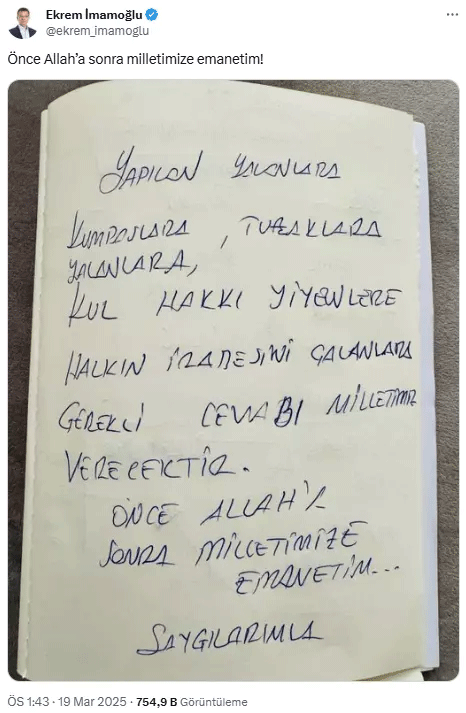 Ekrem İmamoğlu
@ekrem_imamoglu
Önce Allah’a sonra milletimize emanetim!
YAPILAN YALANLARA
KUMPASLARA , TUZAKLARA
YALANLARA,
KUL HAKKI YİYENLERE
HALKIN İRADESİNİ ÇALANLARA
GEREKLİ CEVABI MİLLETİMİZ
VERECEKTİR.
ÖNCE ALLAH'A
SONRA MİLLETİMİZE
EMANETİM...
SAYGILARIMLA
ÖS 1:43 · 19 Mar 2025 · 754,9 B Görüntüleme